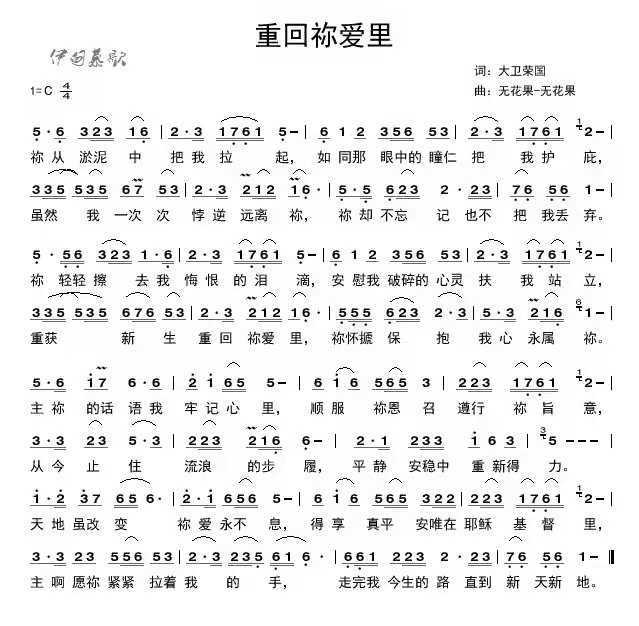 重回祢爱里
伊甸慕歌
词：大卫荣国
1=C 4/4
曲：无花果-无花果
5·6 323 16 | 2·3 1761 5- | 6 1 2 356 53 | 2·3 1761 2- |
祢从 淤泥 中 把我 拉 起，如同那 眼中的瞳仁 把 我护 庇，
335 535 67 53 | 2·3 212 16· | 5·5 623 2·2 23 | 76 56 1- |
虽然 我 一次 次 悖逆 远离 祢， 祢却 不忘 记 也不 把 我丢 弃。
5 56 323 1·6 | 2·3 1761 5- | 6 1 2 356 53 | 2·3 1761 2- |
祢 轻轻 擦 去我 悔恨 的泪 滴，安慰我 破碎的 心灵 扶 我 站 立，
335 535 676 53 | 2·3 212 16· | 555 623 2·3 | 5·3 216 1- |
重获 新 生 重回 祢爱 里，祢怀搋 保 抱 我心 永属 祢。
5·6 17 6·6 | 2·1 65 5- | 6 16 565 3 | 223 1761 2- |
主祢 的话 语我 牢记 心 里， 顺服 祢恩 召 遵行 祢旨 意，
3·3 23 5·3 | 223 216 6- | 2·1 233 1 63 | 5--- |
从今 止 住 流浪 的步 履， 平静 安稳中 重 新得 力。
1·2 37 65 6· | 2·1 656 5- | 6 5 65 322 | 223 1761 2- |
天地 虽改 变 祢 爱 永不 息，得享 真平 安唯在 耶稣 基 督 里，
3·3 23 556 53 | 2·3 235 61 6· | 661 223 2·3 | 76 56 1- ‖
主啊 愿祢 紧紧 拉着 我 的 手， 走完我 今生的 路 直到 新 天新 地。